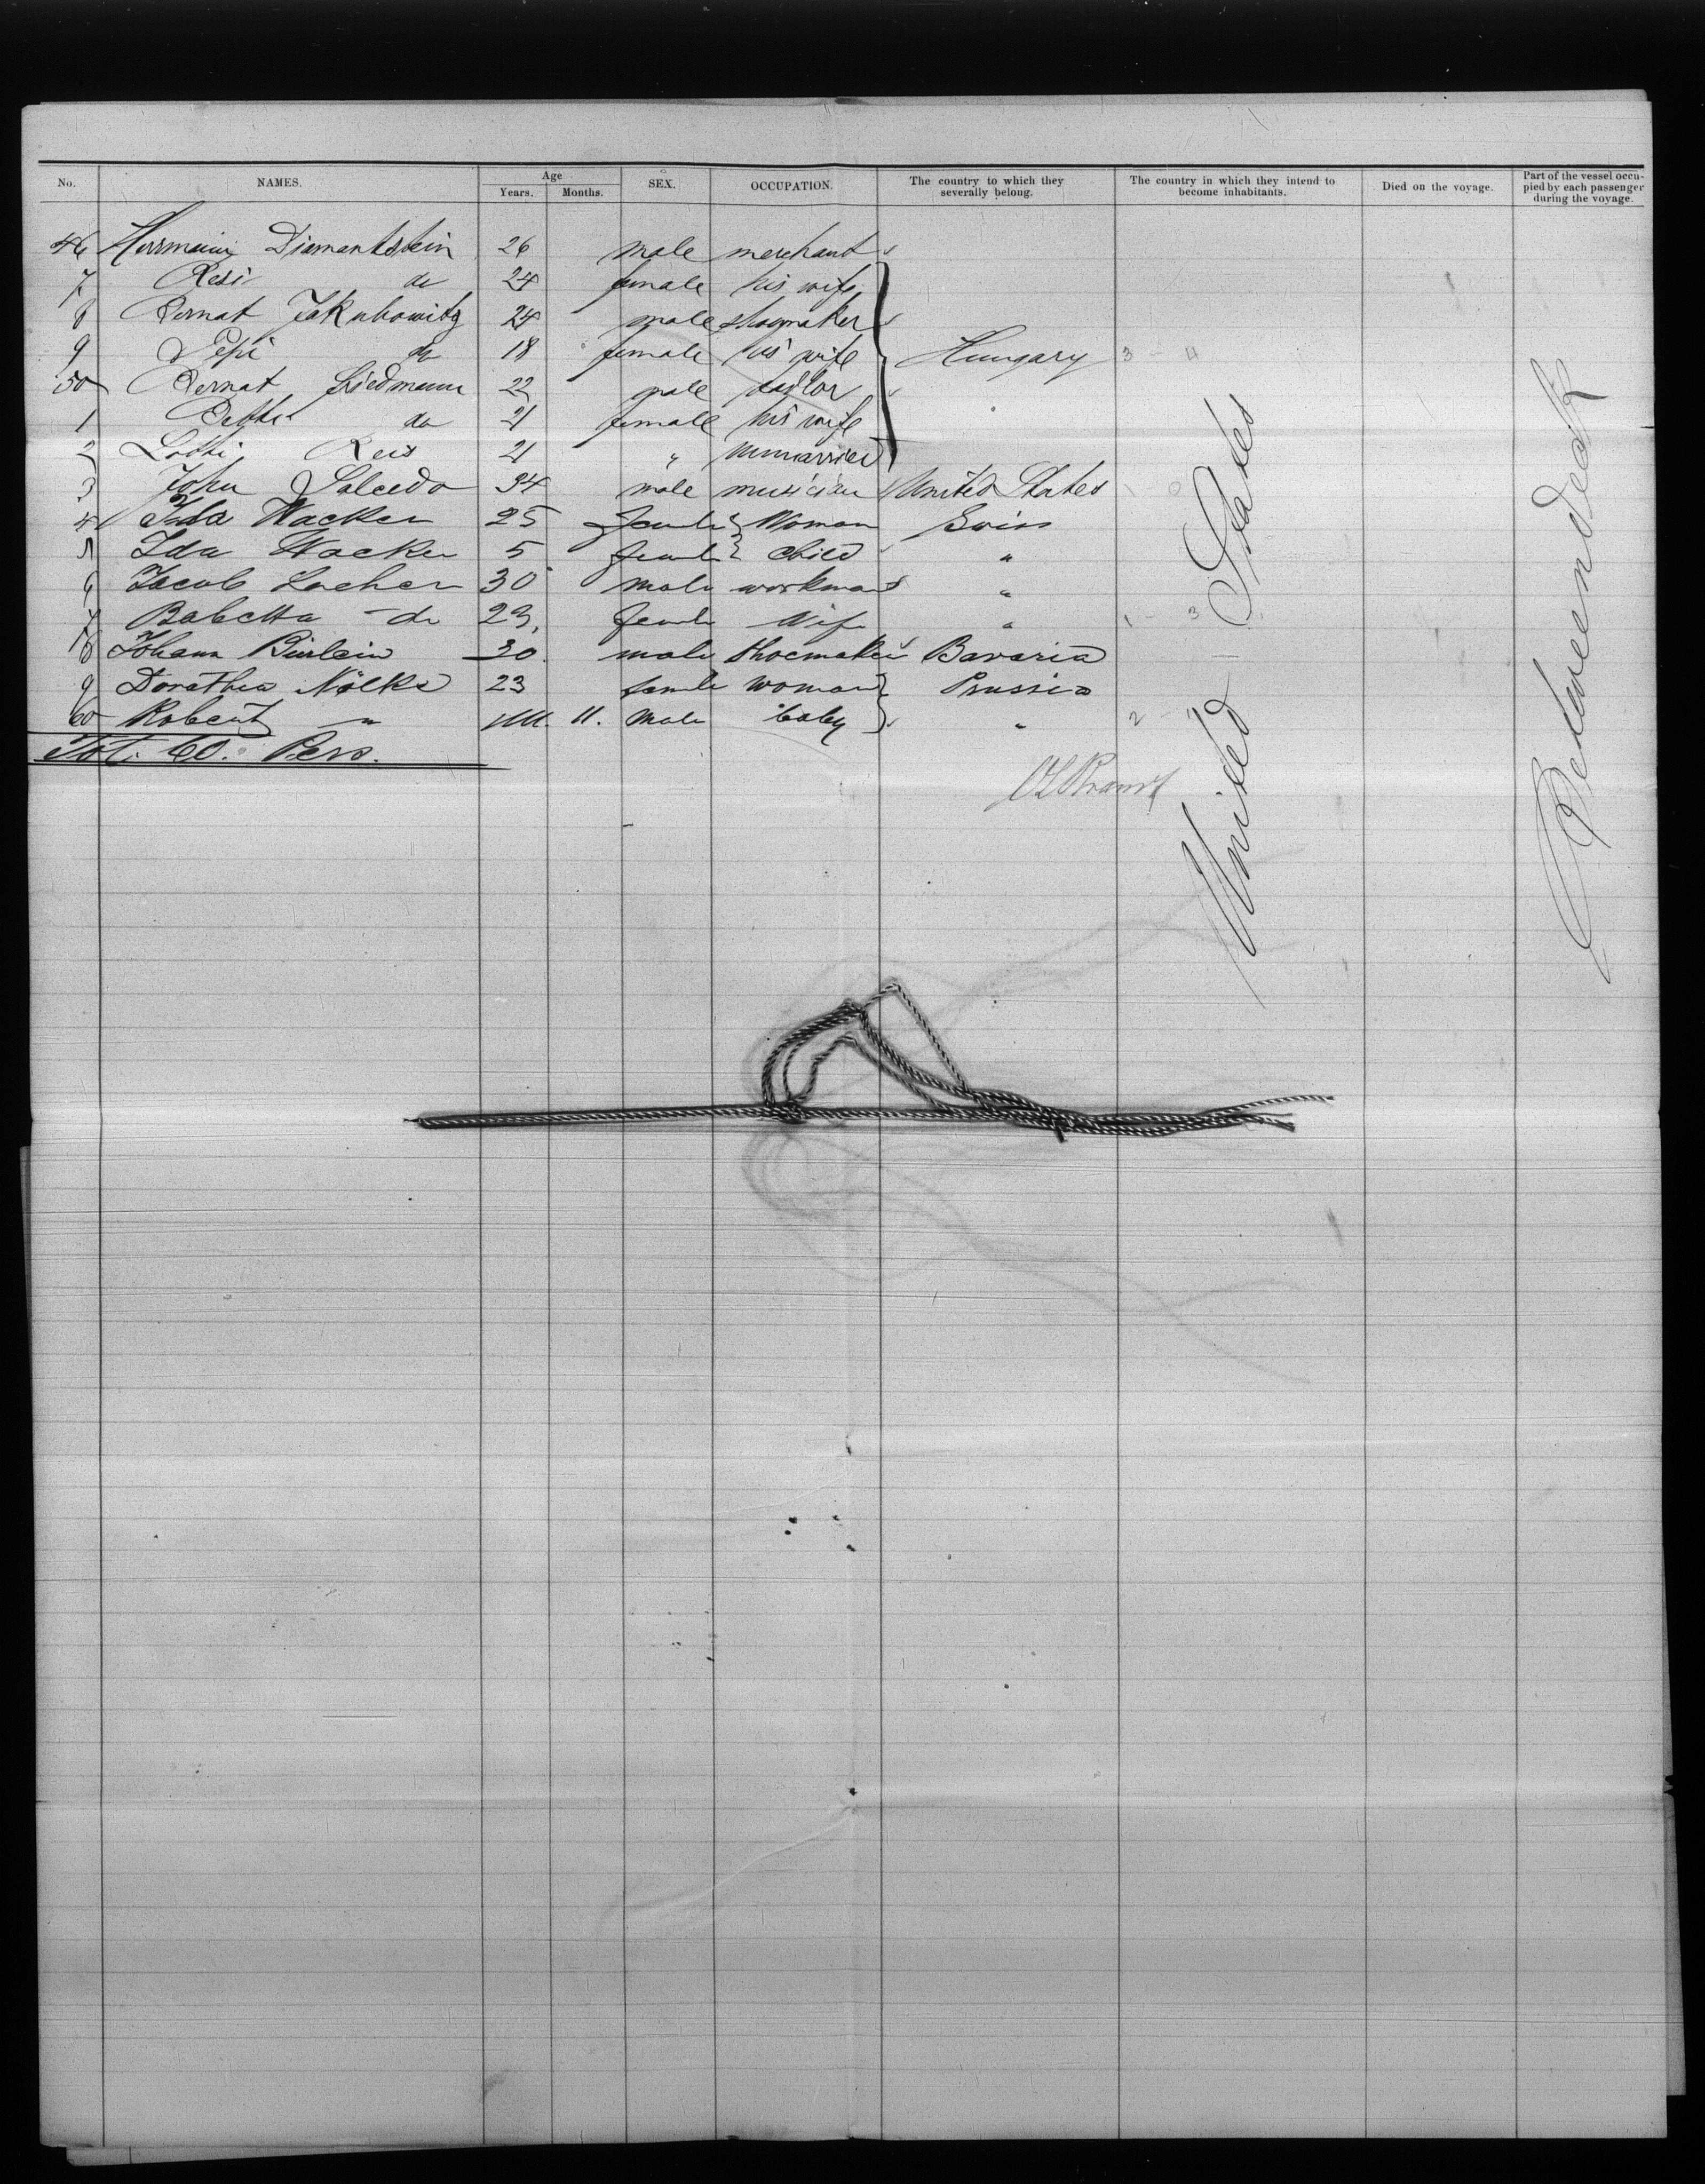 No. NAMES. Age Years. Months. SEX. OCCUPATION. The country to which they severally belong. The country in which they intend to become inhabitants. Died on the voyage. Part of the vessel occupied by each passenger during the voyage.
46 Herrmann Diamantstein 26 male merchant
7 Resi do 24 female his wife
8 Bernat Jakubowitz 24 male shoemaker
9 Pepi do 18 female his wife Hungary 3 - 4
50 Bernat Friedmann 22 male tailor
1 Betti do 21 female his wife
2 Lotti Reis 21 " unmarried
3 John Salcedo 34 male musician United States 1 - 0
4 Ida Wacker 25 female Woman Swiss
5 Ida Wacker 5 female child "
6 Jacob Locher 30 male workman "
7 Babetta - do 23 female Wife " 1 - 3
8 Johann Bürlein 30 male shoemaker Bavaria
9 Dorathea Nölke 23 female woman Prussia
60 Robert " 11. male baby " 2 -
Tot. 60. Pers.
United States
Between deck